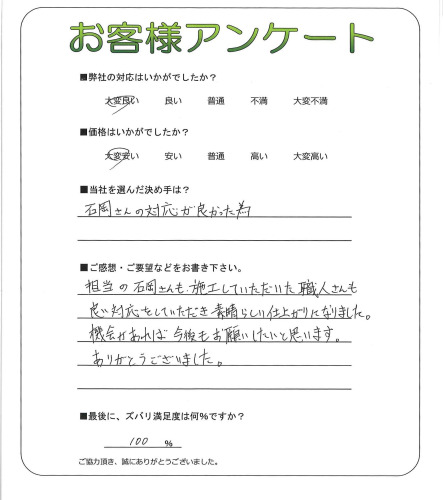 お客様アンケート
■弊社の対応はいかがでしたか?
大変良い 良い 普通 不満 大変不満
■価格はいかがでしたか?
大変安い 安い 普通 高い 大変高い
■当社を選んだ決め手は?
石岡さんの対応が良かった為
■ご感想・ご要望などをお書き下さい。
担当の石岡さんも、施工していただいた職人さんも
良い対応をしていただき素晴らしい仕上がりになりました。
機会があれば今後もお願いしたいと思います。
ありがとうございました。
■最後に、ズバリ満足度は何%ですか?
100 %
ご協力頂き、誠にありがとうございました。